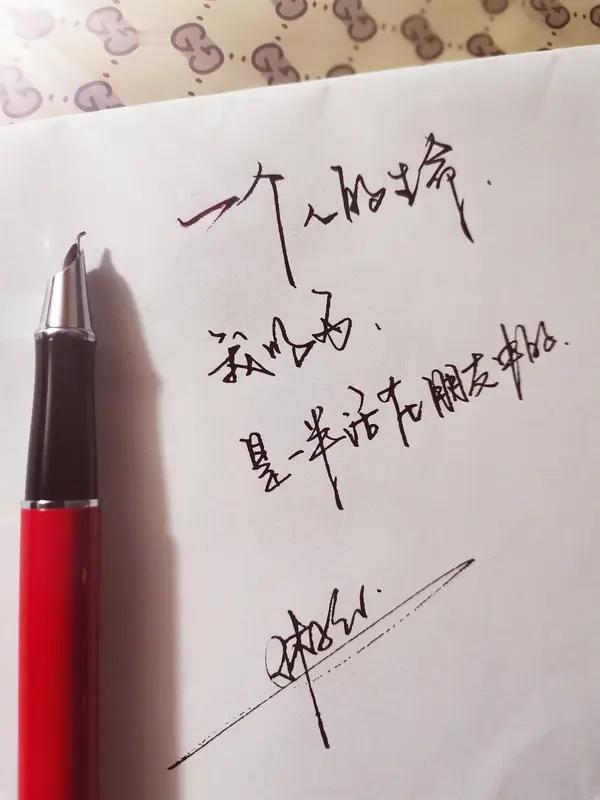 一个人的生命.
我以为.
是一半活在朋友中的.